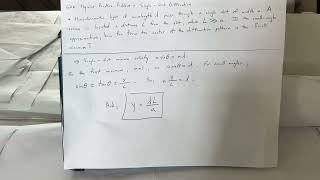 GRE Physics Practice Problem : Single - Slit Diffraction
• Monochromatic light of wavelength d pass through a single slit of width a. A
screen is located a distance L from the slit, where L >> a. In the small-angle
approximation, how far from the center of the diffraction pattern is the first
minimum ?
→ Single - slit minima satisfy a sinθ = md.
the first minimum, m=1, so a sinθ = d. For small angles,
sinθ ≈ tanθ = y/L. So, a y/L = d.
y = dL/a